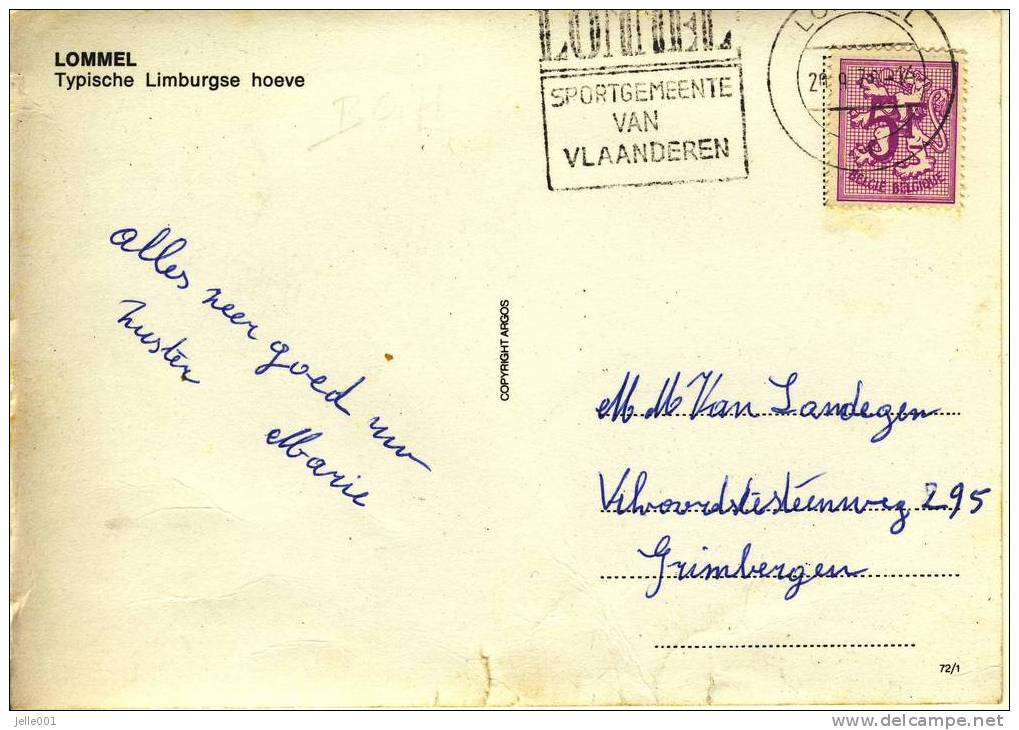 LOMMEL
Typische Limburgse hoeve
LOMMEL
SPORTGEMEENTE
VAN
VLAANDEREN
LOMMEL
5F
BELGIË BELGIQUE
alles neer goed uw
huster
Marie
COPYRIGHT ARGOS
M M Van Landegen
Vilvoordstesteenweg 295
Grimbergen
72/1
jelle001
delcampe.net